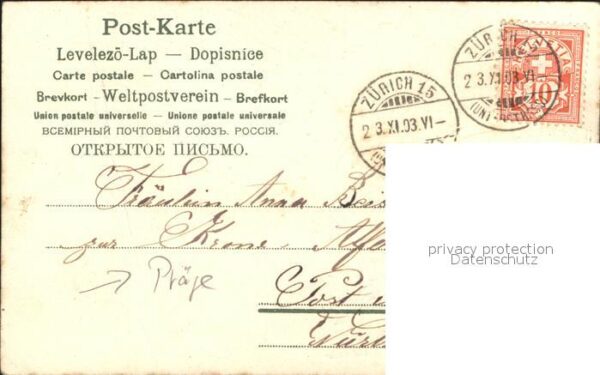 Post-Karte
Levelezō-Lap — Dopisnice
Carte postale — Cartolina postale
Brevkort - Weltpostverein - Brefkort
Union postale universelle — Unione postale universale
ВСЕМІРНЫЙ ПОЧТОВЫЙ СОЮЗЪ. РОССІЯ.
ОТКРЫТОЕ ПИСЬМО.
ZÜRICH 15
2 3.XI.03.VI—
ZÜRICH 15
2 3.XI.03.VI—
10
Fräulein Anna
zur Krone
Post
Präge
privacy protection
Datenschutz